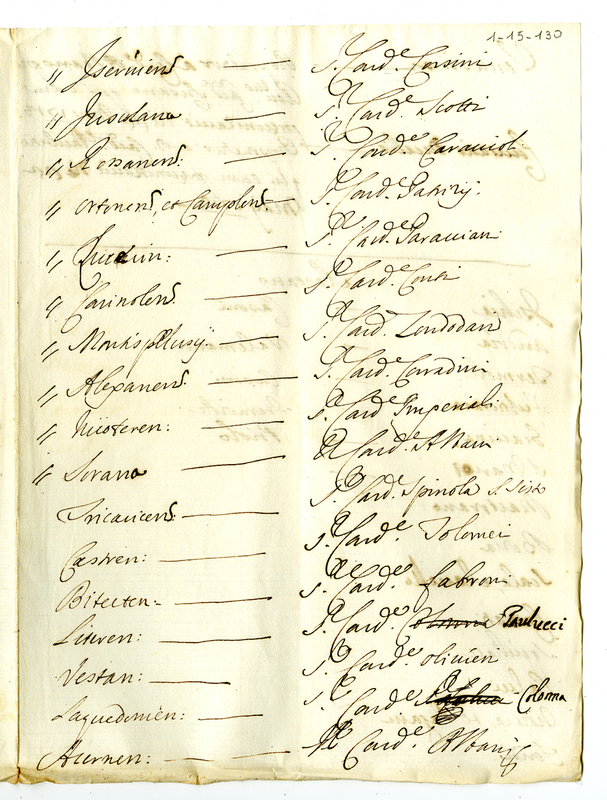 1-15-130
" Iserniens ——— S. Card.e Corsini
" Tusculana ——— S. Card.e Scotti
" Rossanens: ——— S. Card.e Caracciol.
" Ortonens, et Camplens — S. Card.e Patrizij.
" ——— S. Card.e Paraccian:
" Carinolens ——— S. Card.e Conti
" Montis Pelusij — S. Card. Zondodari
" Alexanens ——— S. Card.e Corradini
" Nicoteren: ——— S. Card.e Imperiali
" Sorana ——— S. Card.e Albani
Tricaricens: ——— S. Card.e Spinola S. Sisto
Castren: ——— S. Card.e Tolomei
Bitecten- ——— S. Card.e Fabroni
Literen: ——— S. Card.e Paulucci
Vestan: ——— S. Card.e Olivieri
Laquedonien: ——— S. Card.e Coloma
Acernen: ——— S. Card.e Albani